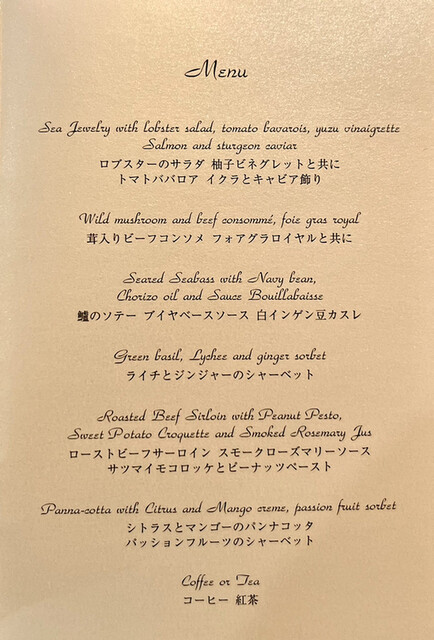 Menu
Sea Jewelry with lobster salad, tomato bavarois, yuzu vinaigrette
Salmon and sturgeon caviar
ロブスターのサラダ 柚子ビネグレットと共に
トマトババロア イクラとキャビア飾り
Wild mushroom and beef consommé, foie gras royal
茸入りビーフコンソメ フォアグラロイヤルと共に
Seared Seabass with Navy bean,
Chorizo oil and Sauce Bouillabaisse
鱸のソテー ブイヤベースソース 白インゲン豆カスレ
Green basil, Lychee and ginger sorbet
ライチとジンジャーのシャーベット
Roasted Beef Sirloin with Peanut Pesto,
Sweet Potato Croquette and Smoked Rosemary Jus
ローストビーフサーロイン スモークローズマリーソース
サツマイモコロッケとピーナッツペースト
Panna-cotta with Citrus and Mango creme, passion fruit sorbet
シトラスとマンゴーのパンナコッタ
パッションフルーツのシャーベット
Coffee or Tea
コーヒー 紅茶